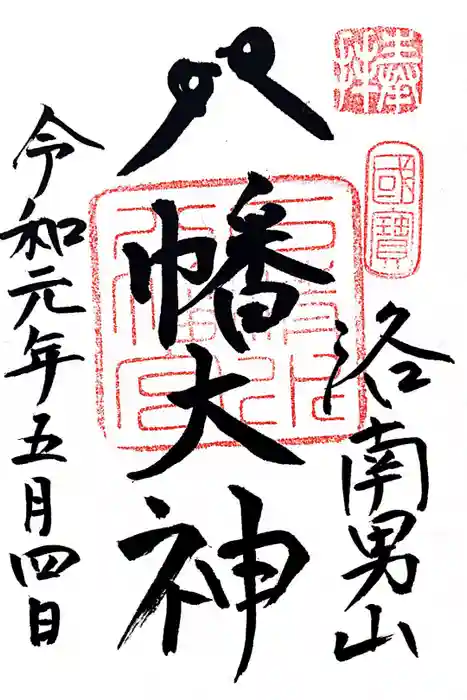 奉拝
國寶
洛南男山
八幡大神
令和元年五月四日